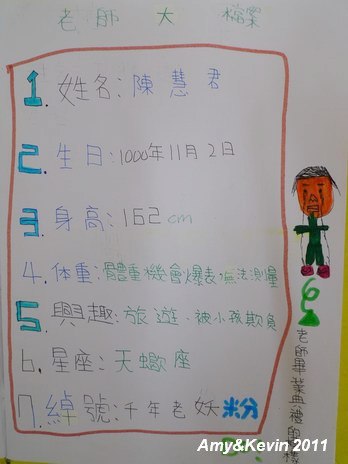 老師大檔案
1. 姓名：陳慧君
2. 生日：1000年11月2日
3. 身高：162cm
4. 体重：體重機會爆表，無法測量
5. 興趣：旅遊、被小孩欺負
6. 星座：天蠍座
7. 綽號：千年老妖粉
老師畢業典禮的樣
Amy&Kevin 2011